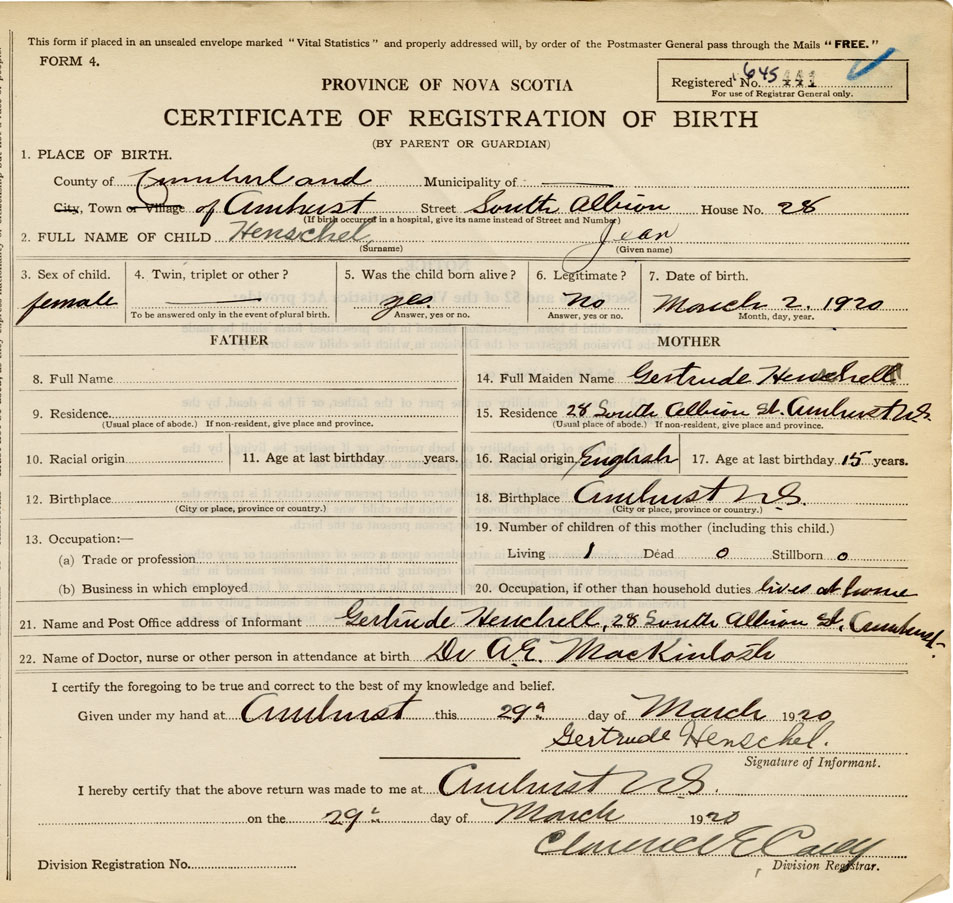 This form if placed in an unsealed envelope marked "Vital Statistics" and properly addressed will, by order of the Postmaster General pass through the Mails "FREE."
FORM 4.
PROVINCE OF NOVA SCOTIA
Registered No. 645
For use of Registrar General only.
CERTIFICATE OF REGISTRATION OF BIRTH
(BY PARENT OR GUARDIAN)
1. PLACE OF BIRTH.
County of Cumberland Municipality of
City, Town or Village of Amherst Street South Albion House No. 28
(If birth occurred in a hospital, give its name instead of Street and Number)
2. FULL NAME OF CHILD Henschel Jean
(Surname) (Given name)
3. Sex of child. 4. Twin, triplet or other? 5. Was the child born alive? 6. Legitimate? 7. Date of birth.
female yes No March 2. 1920
To be answered only in the event of plural birth. Answer, yes or no. Answer, yes or no. Month, day, year.
FATHER MOTHER
8. Full Name 14. Full Maiden Name Gertrude Henschell
9. Residence 15. Residence 28 South Albion St. Amherst N.S
(Usual place of abode.) If non-resident, give place and province. (Usual place of abode.) If non-resident, give place and province.
10. Racial origin 11. Age at last birthday years. 16. Racial origin English 17. Age at last birthday 15 years.
12. Birthplace 18. Birthplace Amherst N.S.
(City or place, province or country.) (City or place, province or country.)
19. Number of children of this mother (including this child.)
13. Occupation:—
(a) Trade or profession Living 1 Dead 0 Stillborn 0
(b) Business in which employed 20. Occupation, if other than household duties lives at home
21. Name and Post Office address of Informant Gertrude Henchell, 28 South Albion St, Amherst.
22. Name of Doctor, nurse or other person in attendance at birth Dr A.E. MacKintosh
I certify the foregoing to be true and correct to the best of my knowledge and belief.
Given under my hand at Amherst this 29th day of March 1920
Gertrude Henschel.
Signature of Informant.
I hereby certify that the above return was made to me at Amherst N.S.
on the 29th day of March 1920
Clarence E Casey
Division Registration No. Division Registrar.